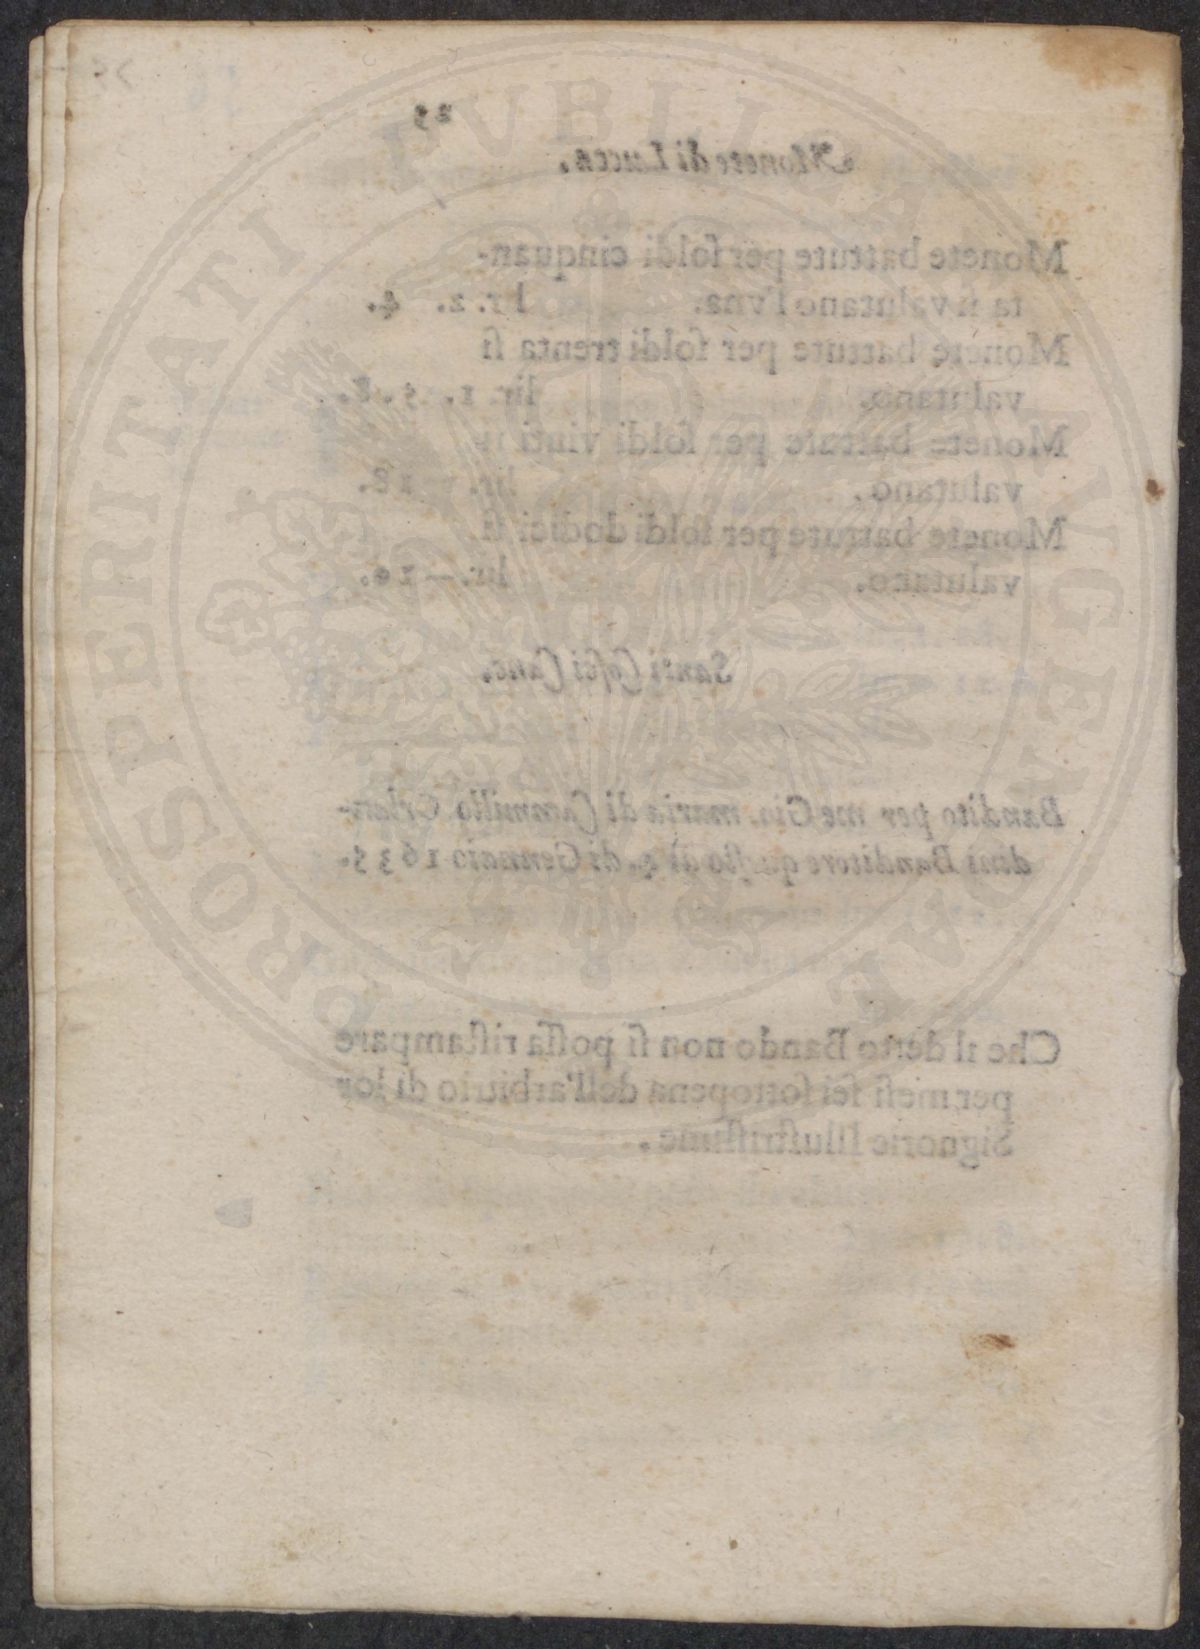 23
Monete di Lucca.
Monete battute per soldi cinquan-
ta si valutano l'vna. lir. 2. 4.
Monete battute per soldi trenta si
valutano. lir. 1. 5. 8.
Monete battute per soldi vinti si
valutano. lir. 18.
Monete battute per soldi dodici si
valutano. lir. — 10.
Santi Cosci Canc.
Bandito per me Gio. maria di Cammillo Orlan-
dini Banditore questo dì di Gennaio 1635.
Che il detto Bando non si possa ristampare
per mesi sei sotto pena dell'arbitrio di lor
Signorie Illustrissime.
PROSPERITATI PVBLICAE AVGENDAE